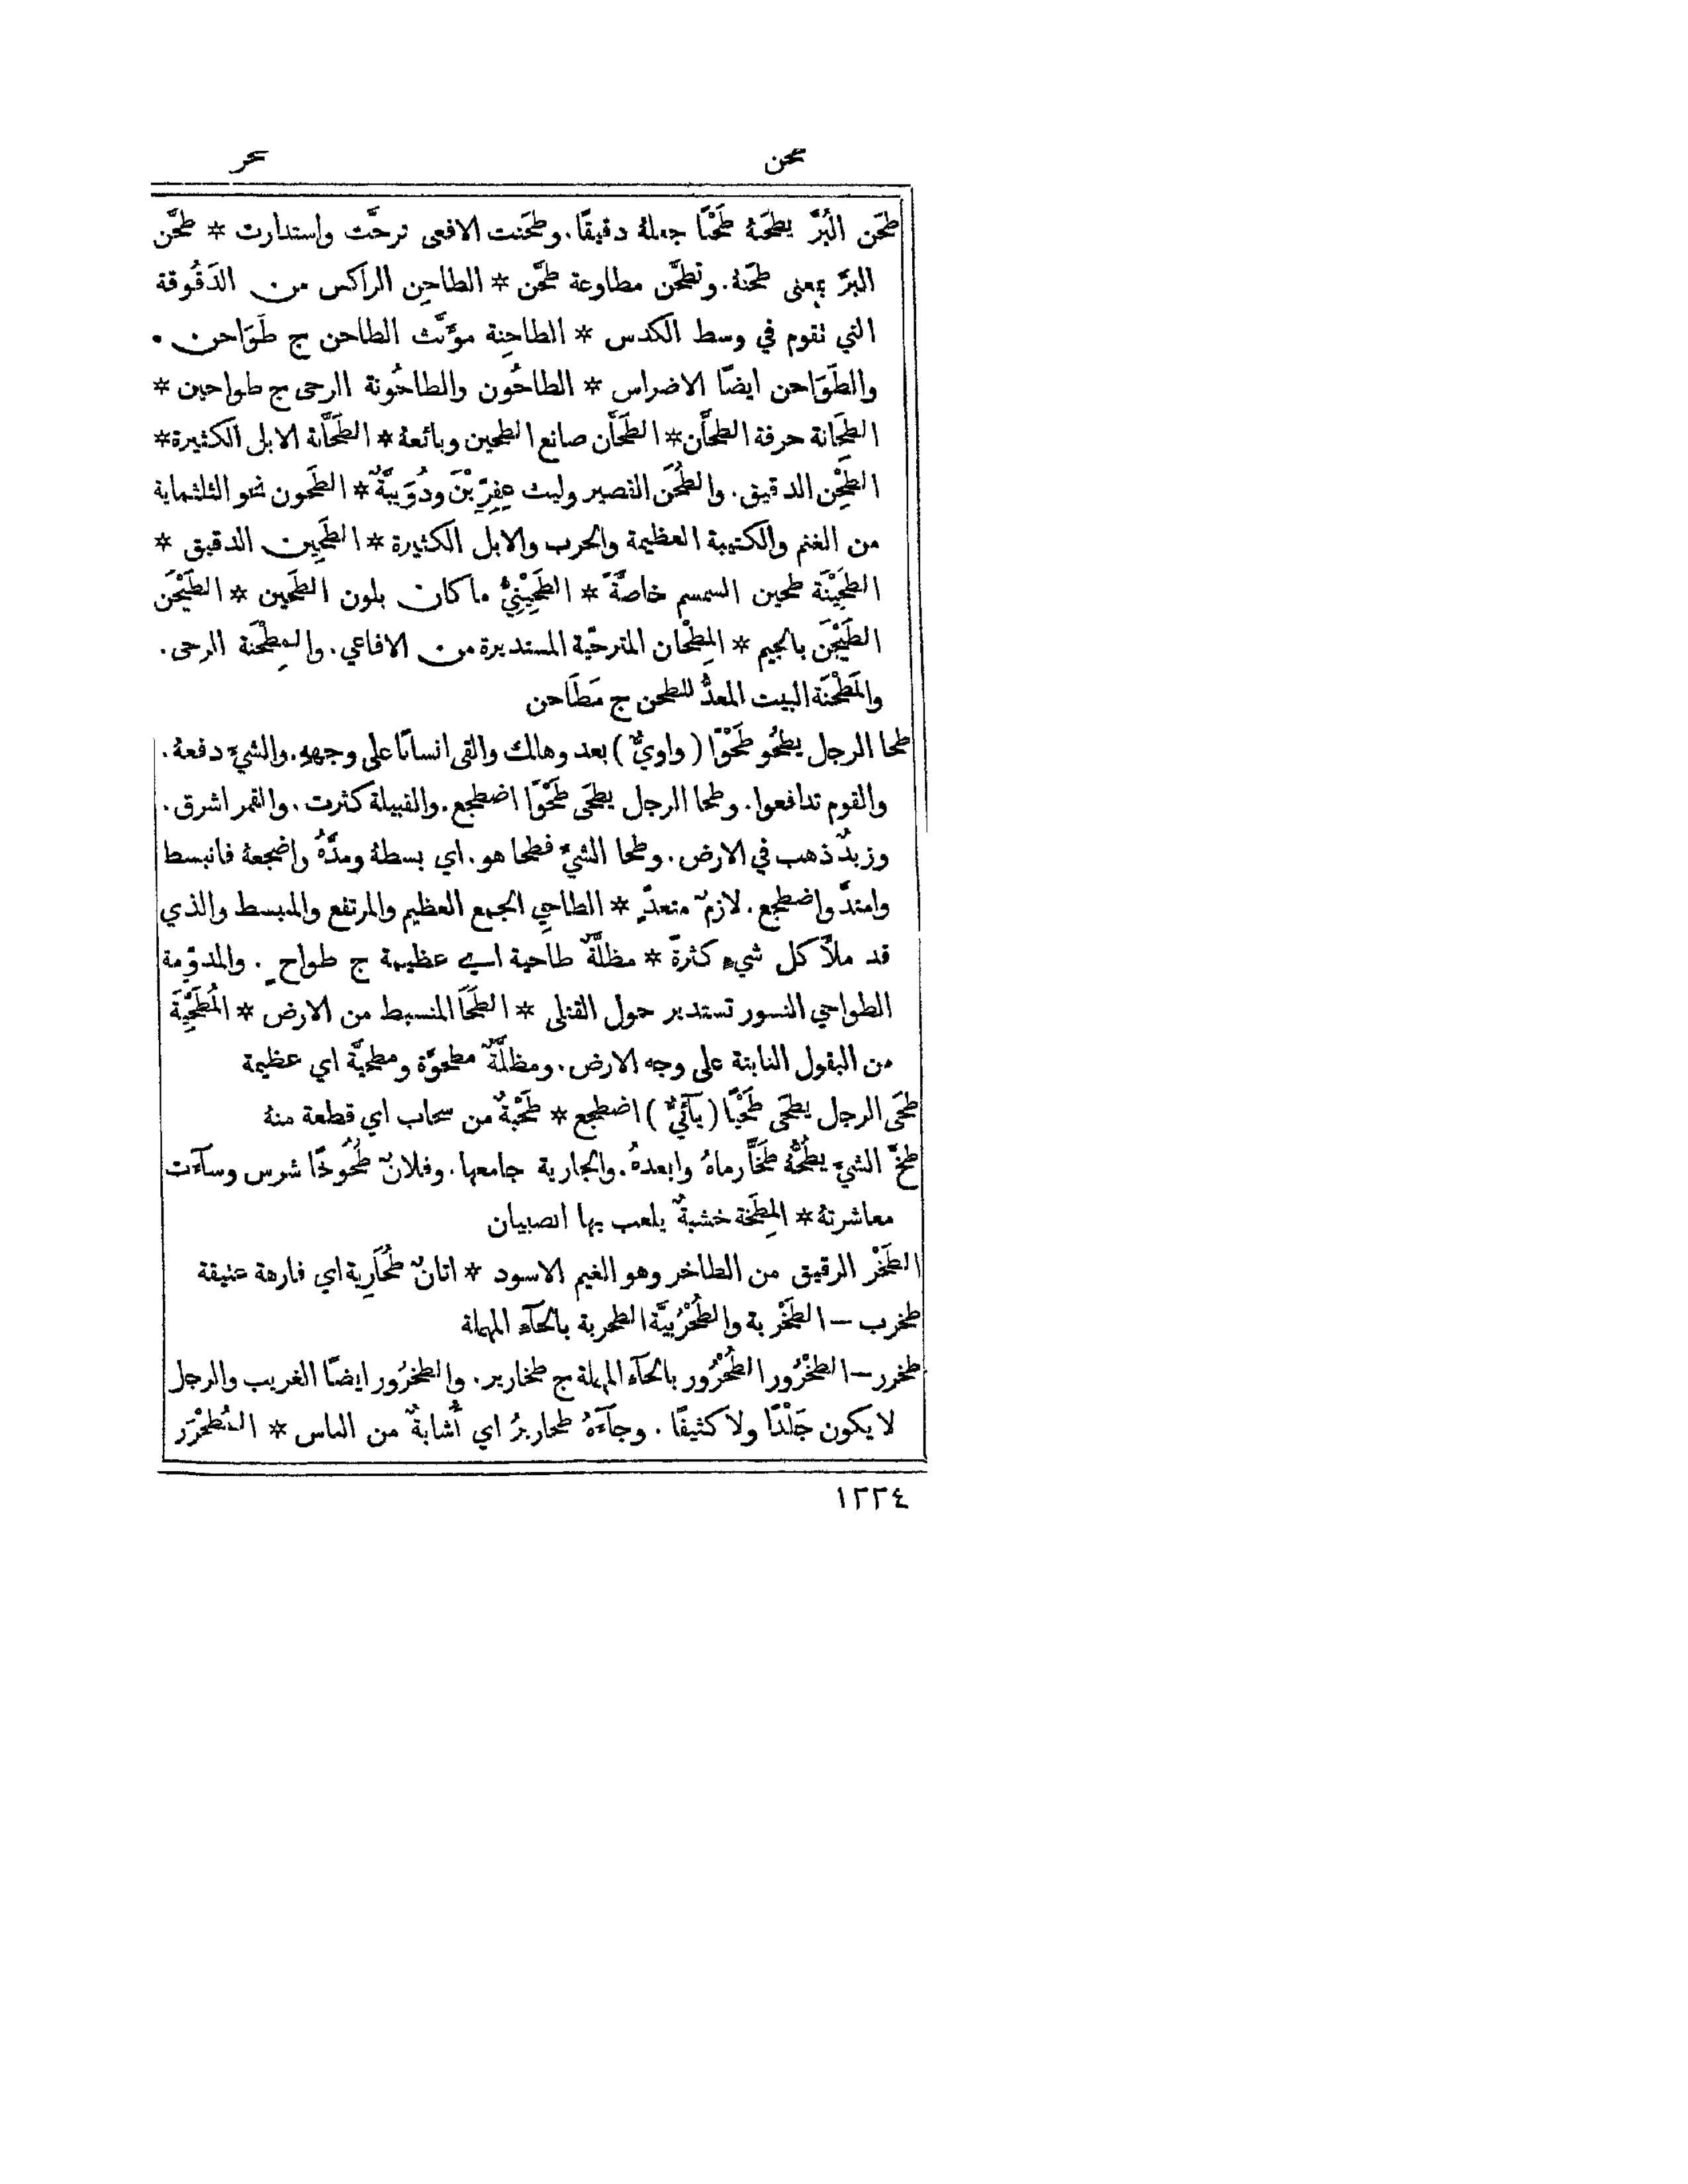 طحن طخر
طحَن البُرَّ يطحَنهُ طَحْنًا جعلهُ دقيقًا. وطحَنت الافعى ترحَّت واستدارت * طحَّن
البرَّ بمعنى طحَنهُ. وتطحَّن مطاوعة طحَّن * الطاحِن الراكس من الدَقُوقة
التي تقوم في وسط الكدس * الطاحِنة مؤَنَّث الطاحن ج طَوَاحن .
والطَوَاحن ايضًا الاضراس * الطاحُون والطاحُونة الرحى ج طواحين *
الطِحَانة حرفة الطحَّان * الطَحَّان صانع الطحين وبائعهُ * الطَحَّانة الابل الكثيرة *
الطِحْن الدقيق. والطُحَن القصير وليث عِفِرِّيْنَ ودُوَيبَّةٌ * الطَحون نحو الثلثماية
من الغنم والكتيبة العظيمة والحرب والابل الكثيرة * الطَحِين الدقيق *
الطَحِيْنَة طحين السمسم خاصَّةً * الطَحِيْنِيُّ ما كان بلون الطَحين * الطَيْحَن
الطَيْجَن بالجيم * المِطْحَان المترحّية المستديرة من الافاعي. والمِطْحَنة الرحى.
والمَطْحَنَة البيت المعدُّ للطحن ج مَطَاحن
طحا الرجل يطحُو طَحْوًا ( واويٌّ ) بعد وهلك والقى انسانًا على وجههِ. والشيءَ دفعهُ.
والقوم تدافعوا. وطحا الرجل يطحَى طَحْوًا اضطجع. والقبيلة كثرت. والقمر اشرق.
وزيدٌ ذهب في الارض. وطحا الشيءَ فطحا هو. اي بسطهُ ومدَّهُ واضجعهُ فانبسط
وامتدَّ واضطجع. لازمٌ متعدٍّ * الطاحِي الجمع العظيم والمرتفع والمنبسط والذي
قد ملأَ كل شيءٍ كثرةً * مظلَّةٌ طاحية اي عظيمة ج طواحٍ . والمدوّمة
الطواحي النسور تستدير حول القتلى * الطَحَا المنبسط من الارض * المُطَحِّيَة
من البقول النابتة على وجه الارض. ومظلَّةٌ مطحوَّة ومطحيَّة اي عظيمة
طحَى الرجل يطحَى طَحْيًا ( يآئيٌّ ) اضطجع * طَحْيَةٌ من سحاب اي قطعة منهُ
طخَّ الشيءَ يطُخُّهُ طَخًّا رماهُ وابعدهُ. والجارية جامعها. وفلانٌ طُخُوخًا شرس وسآءَت
معاشرتهُ * المِطَخَّة خشبةٌ يلعب بها الصبيان
الطَخْر الرقيق من الطاخر وهو الغيم الاسود * اتانٌ طُخَارِية اي فارهة عتيقة
طخرب – الطَخْربة والطُخْرُبيَّة الطحربة بالحآء المهملة
طخرر – الطخْرُور الطُحْرُور بالحآءِ المهملة ج طخارير. والطخرُور ايضًا الغريب والرجل
لا يكون جَلْدًا ولا كثيفًا . وجآءَهُ طخاريرُ اي أُشابةٌ من الناس * المُطخْرَر
١٢٢٤